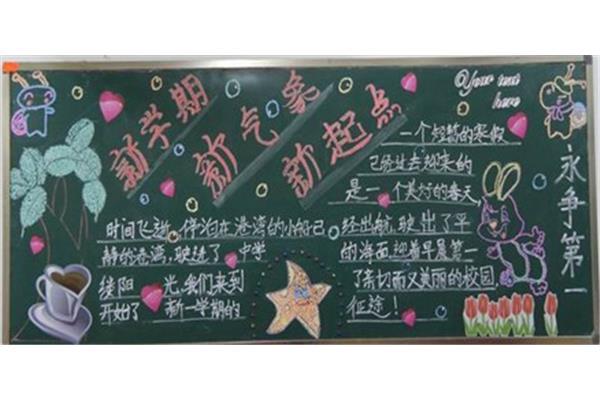 新学期
新气象
新起点
Your text
here
永争第一
一个短暂的寒假
已经过去迎来的
是一个美好的春天,
时间飞逝,停泊在港湾的小船已
静的港湾,驶进了 中学
缕阳 光,我们来到
开始了 新一学期的
经出航,驶出了平
的海面,迎着早晨第一
了崭切而又美丽的校园,
征途!